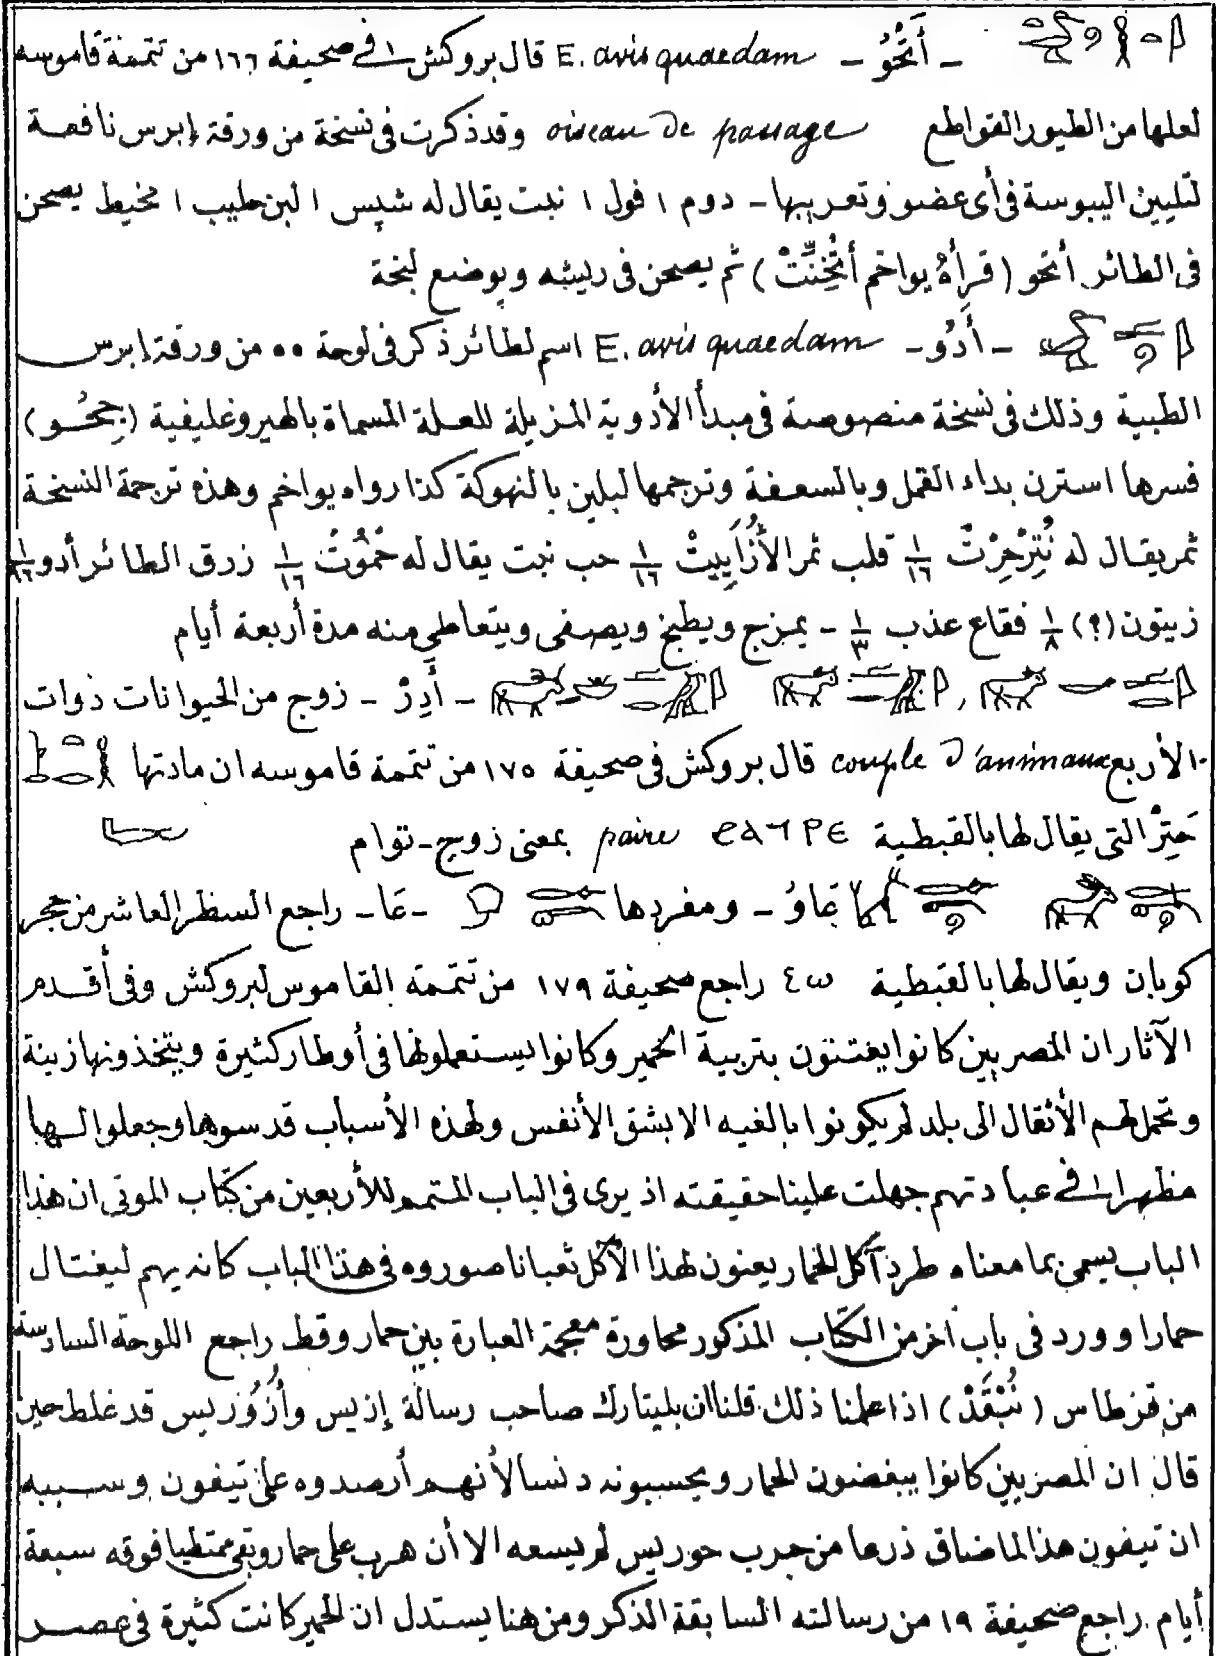 - أَتْحُو - E. avis quaedam قال بروكش في صحيفة ١٦٦ من تتمة قاموسه
لعلها من الطيور القواطع oiseau de passage وقد ذكرت فى نسخة من ورقة إبرس نافعة
لتليين اليبوسة فى أى عضو وتعريبها - دوم ١ فول ١ نبت يقال له شپس ١ لبن حليب ١ مخيط يصحن
فى الطائر أتحو (قرأهُ يواخم أُتْخِنِّتْ) ثم يصحن فى ريشه ويوضع لبخة
- أَدُو - E. avis quaedam اسم لطائر ذكر فى لوحة ٥٥ من ورقة إبرس
الطبية وذلك فى نسخة منصوصة فى مبدأ الأدوية المزيلة للعلة المسماة بالهيروغليفية (جحُو)
فسرها استرن بداء القمل وبالسعفة وترجمها لبلين بالنهوكة كذا رواه يواخم وهذه ترجمة النسخة
ثمر يقال له نُتِرْحِرْتْ ١/١٦ قلب ثمر الأُزاَبِيتْ ١/١٦ حب نبت يقال له خَمُوُتْ ١/١٦ زرق الطائر أدو ١/١٦
زيتون (؟) ١/٨ فقاع عذب ١/٣ - يمزج ويطبخ ويصفى ويتعاطى منه مدة أربعة أيام
- أَدِرْ - زوج من الحيوانات ذوات
الأربع couple d'animaux قال بروكش فى صحيفة ١٧٥ من تتمة قاموسه ان مادتها
حَتِرْ التى يقال لها بالقبطية ϩⲁⲧⲣⲉ paire بمعنى زوج - توام
عَاوُ - ومفردها - عَا - راجع السطر العاشر من حجر
كوبان ويقال لها بالقبطية ⲉⲱ راجع صحيفة ١٧٩ من تتمة القاموس لبروكش وفى أقدم
الآثار ان المصريين كانوا يعتنون بتربية الحمير وكانوا يستعملونها فى أوطار كثيرة ويتخذونها زينة
وتحمل لهم الأثقال الى بلد لم يكونوا بالغيه الا بشق الأنفس ولهذه الأسباب قدسوها وجعلوا لها
مظهرا في عبادتهم جهلت علينا حقيقته اذ يرى فى الباب المتمم للأربعين من كتاب الموتى ان هذا
الباب يسمى بما معناه طرد آكل الحمار يعنون لهذا الآكل ثعبانا صوروه فى هذا الباب كانه يهم ليغتال
حمارا وورد فى باب آخر من الكتاب المذكور محاورة معجمة العبارة بين حمار وقط راجع اللوحة السادسة
من قرطاس (نُبْقَدْ) اذا علمنا ذلك قلنا ان بليتارك صاحب رسالة إزيس وأُزُوريس قد غلط حين
قال ان المصريين كانوا يبغضون الحمار ويحسبونه دنسا لأنهم أرصدوه على تيفون وسببه
ان تيفون هذا لما ضاق ذرعا من حرب حوريس لم يسعه الا أن هرب على حمار وبقى ممتطيا فوقه سبعة
أيام راجع صحيفة ١٩ من رسالته السابقة الذكر ومن هنا يستدل ان الحمير كانت كثيرة فى عصر